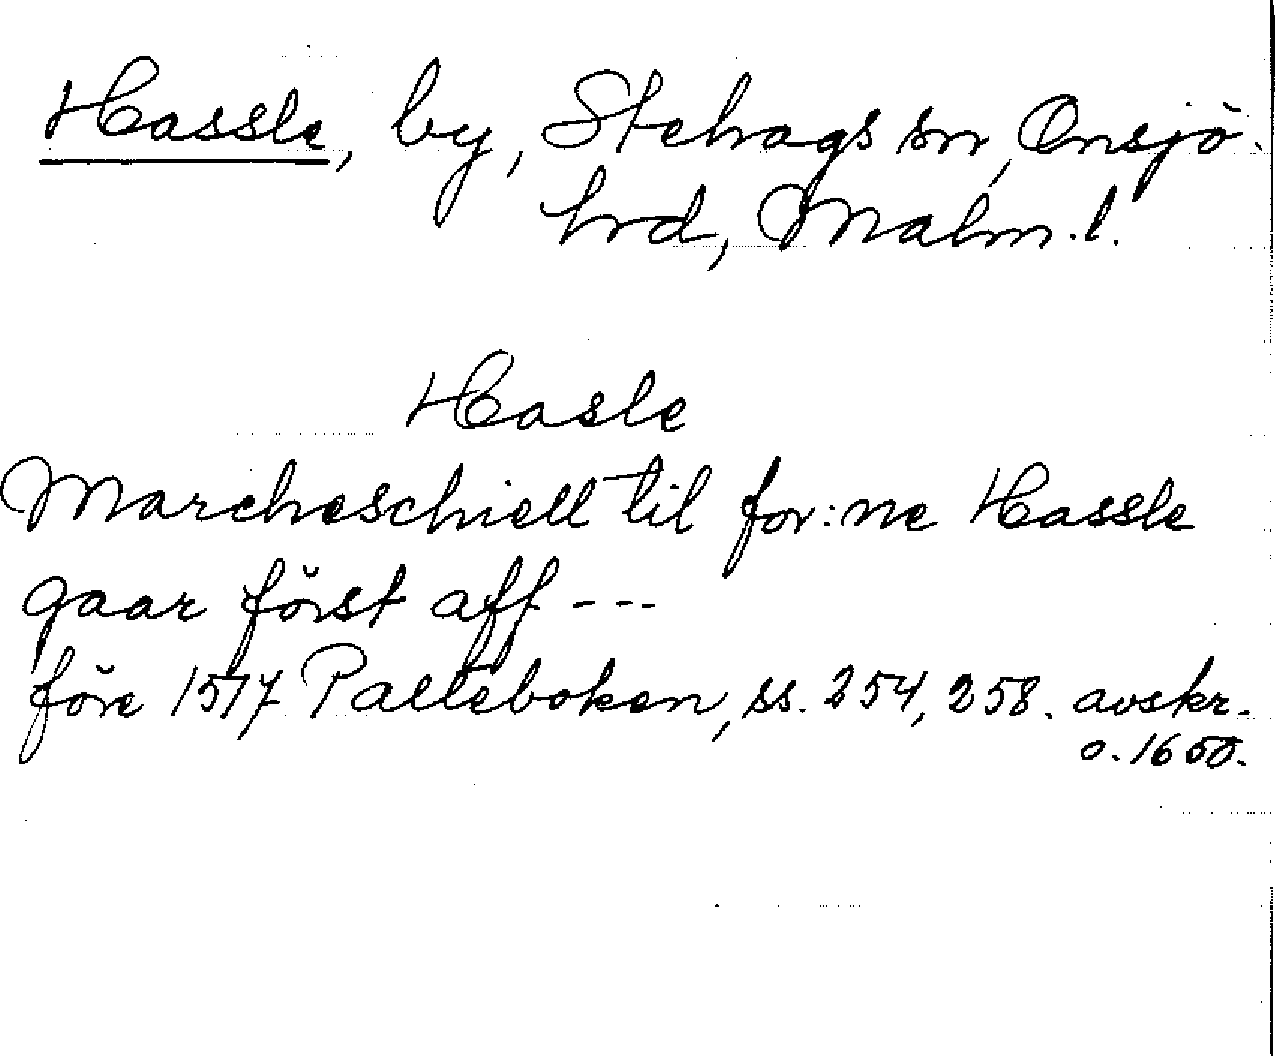 Hassle, by, Stehags sn, Onsjö
hrd, Malm. l.
Hasle
Marcheschiell til for:ne Hassle
gaar först aff ---
före 1517 Palteboken, ss. 254, 258. avskr.
o. 1650.